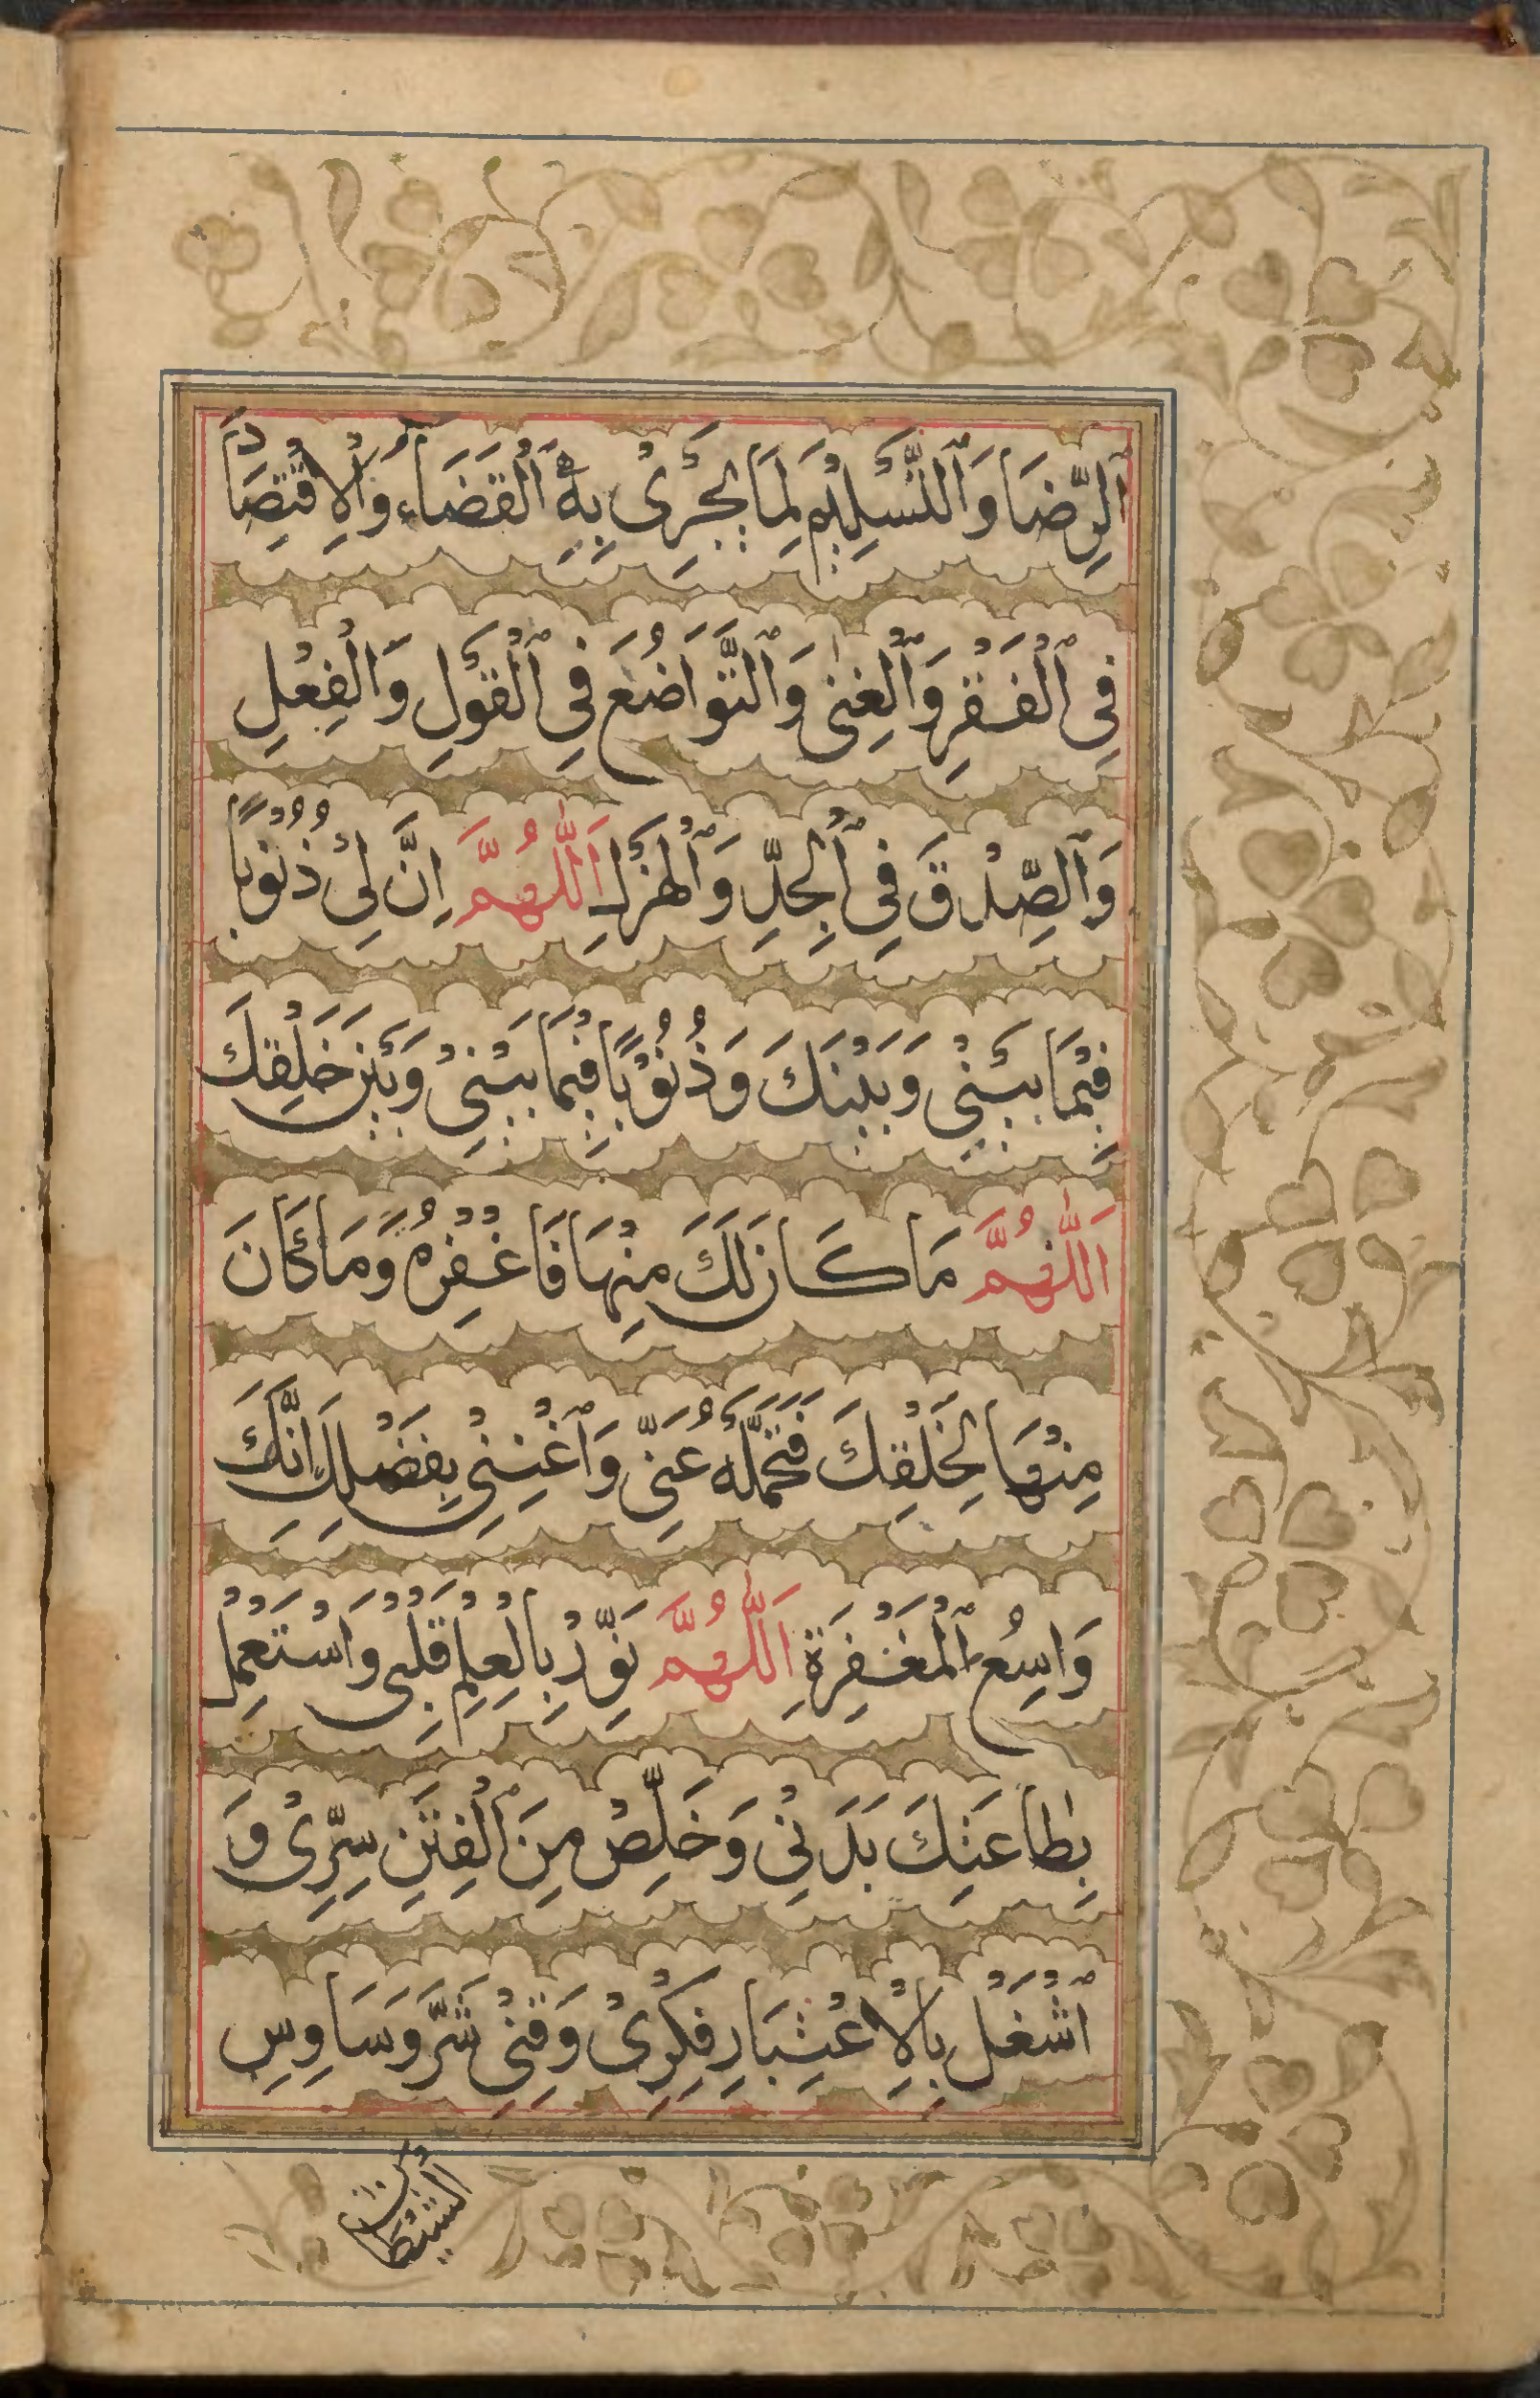 اَلرِّضَا وَٱلتَّسْلِيْمِ لِمَا يَجْرِىْ بِهِ ٱلْقَضَاءُ وَٱلْاِقْتِصَادَ
فِى ٱلْفَقْرِ وَٱلْغِنٰى وَٱلتَّوَاضُعَ فِى ٱلْقَوْلِ وَالْفِعْلِ
وَٱلصِّدْقَ فِى ٱلْجِدِّ وَٱلْهَزْلِ اَللّٰهُمَّ اِنَّ لِىْ ذُنُوْبًا
فِيْمَا بَيْنِىْ وَبَيْنَكَ وَذُنُوْبًا فِيْمَا بَيْنِىْ وَبَيْنَ خَلْقِكَ
اَللّٰهُمَّ مَا كَانَ لَكَ مِنْهَا فَاغْفِرْهُ وَمَا كَانَ
مِنْهَا لِخَلْقِكَ فَتَحَمَّلْهُ عَنِّىْ وَٱغْنِنِىْ بِفَضْلِكَ اِنَّكَ
وَاسِعُ ٱلْمَغْفِرَةِ اَللّٰهُمَّ نَوِّرْ بِالْعِلْمِ قَلْبِىْ وَاسْتَعْمِلْ
بِطَاعَتِكَ بَدَنِىْ وَخَلِّصْ مِنَ ٱلْفِتَنِ سِرِّىْ وَ
ٱشْغَلْ بِالْاِعْتِبَارِ فِكْرِىْ وَقِنِىْ شَرَّ وَسَاوِسِ
الشَّيْطَانِ